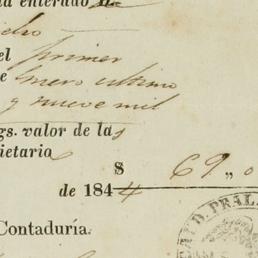 ha enterado D.
idro
el primer
e Enero ultimo
y nueve mil
gs. valor de las
ietario
$ 69,, 0
de 1844
Contaduría.
AUD. PRAL.